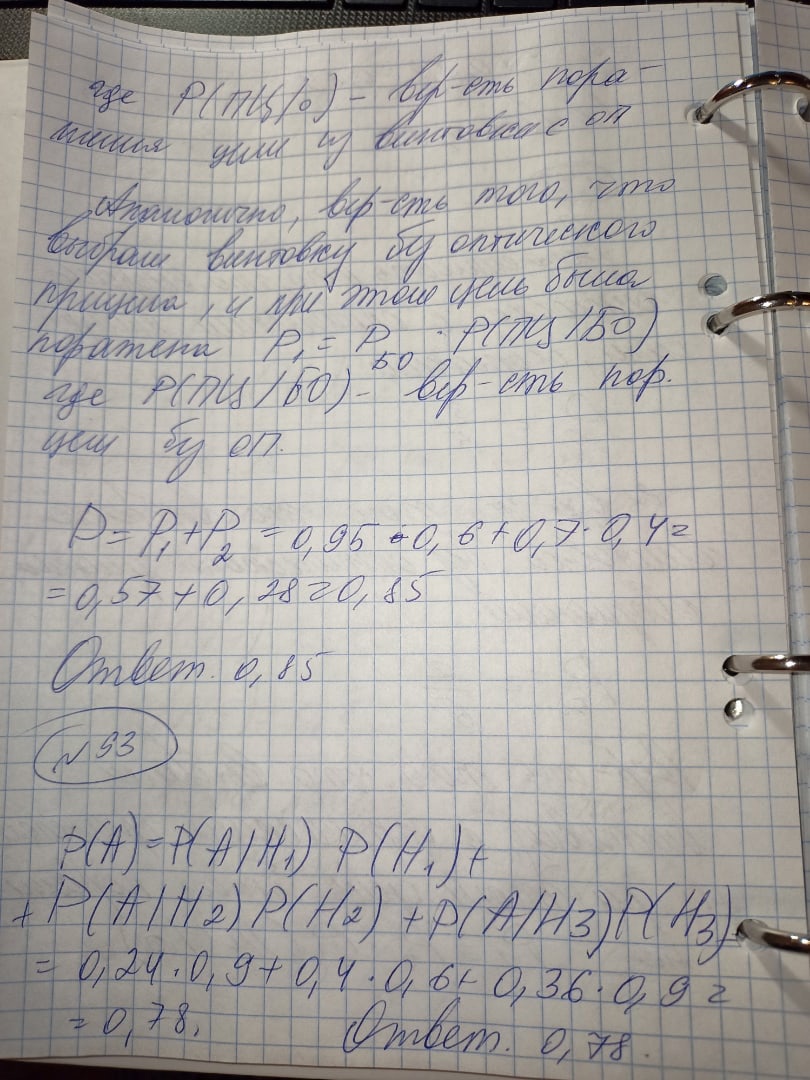 где P(ПЦ/о) – вер-сть пора-
жения цели из винтовки с оп
Аналогично, вер-сть того, что
выбрали винтовку без оптического
прицела, и при этом цель была
поражена P₁ = P_БО · P(ПЦ/БО)
где P(ПЦ/БО) – вер-сть пор.
цели без оп.
P = P₁ + P₂ = 0,95 · 0,6 + 0,7 · 0,4 =
= 0,57 + 0,28 = 0,85
Ответ. 0,85
№ 93
P(A) = P(A/H₁) P(H₁) +
+ P(A/H₂) P(H₂) + P(A/H₃) P(H₃)
= 0,24 · 0,9 + 0,4 · 0,6 + 0,36 · 0,9 =
= 0,78. Ответ. 0,78.